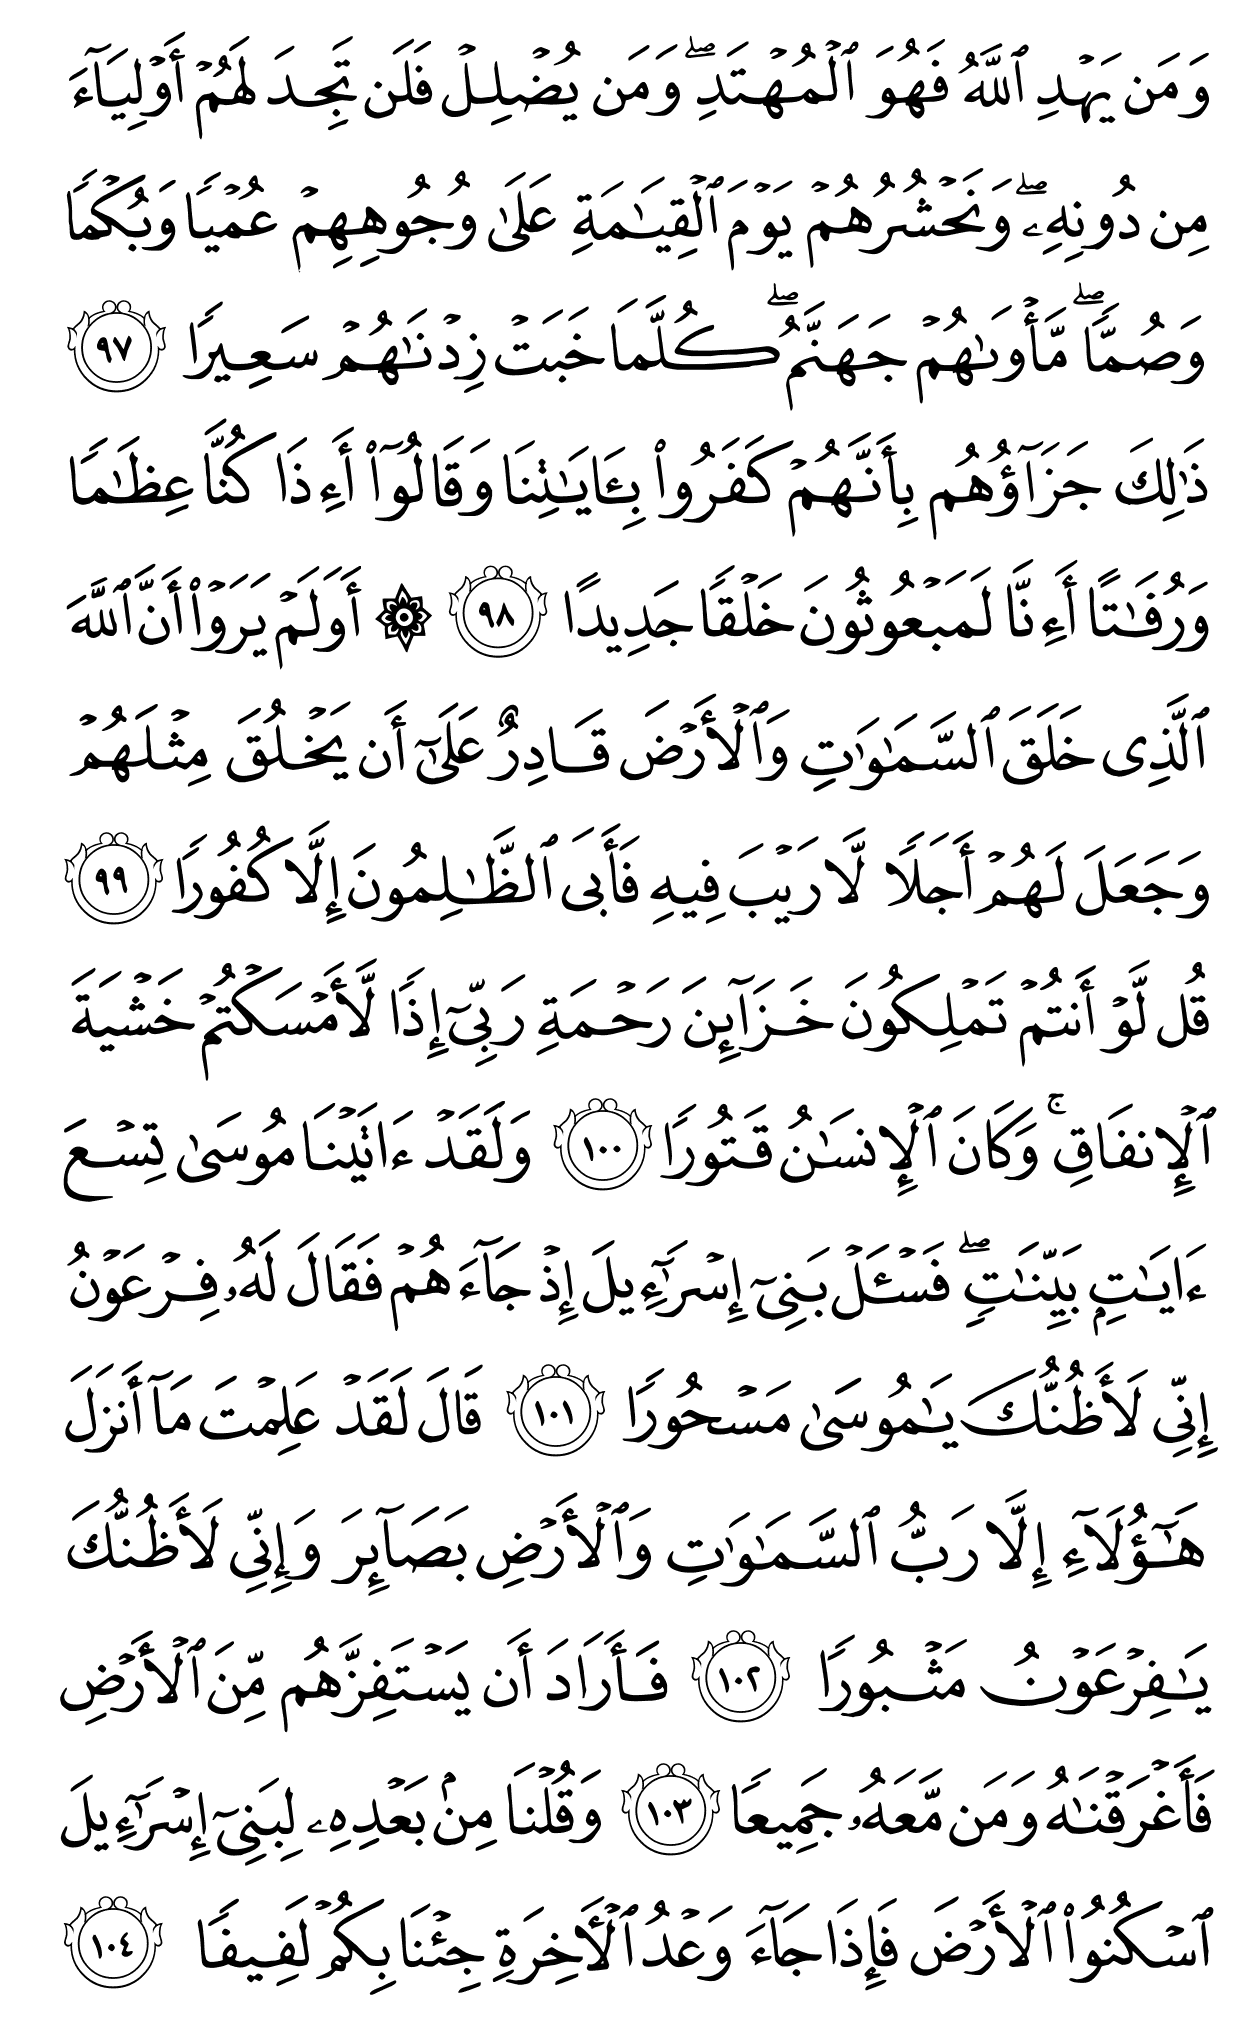 وَمَن يَهۡدِ ٱللَّهُ فَهُوَ ٱلۡمُهۡتَدِۖ وَمَن يُضۡلِلۡ فَلَن تَجِدَ لَهُمۡ أَوۡلِيَآءَ
مِن دُونِهِۦۖ وَنَحۡشُرُهُمۡ يَوۡمَ ٱلۡقِيَـٰمَةِ عَلَىٰ وُجُوهِهِمۡ عُمۡيًا وَبُكۡمًا
وَصُمًّاۖ مَّأۡوَىٰهُمۡ جَهَنَّمُۖ كُلَّمَا خَبَتۡ زِدۡنَـٰهُمۡ سَعِيرًا ٩٧
ذَٰلِكَ جَزَآؤُهُم بِأَنَّهُمۡ كَفَرُواْ بِـَٔايَـٰتِنَا وَقَالُوٓاْ أَءِذَا كُنَّا عِظَـٰمًا
وَرُفَـٰتًا أَءِنَّا لَمَبۡعُوثُونَ خَلۡقًا جَدِيدًا ٩٨ ۞ أَوَلَمۡ يَرَوۡاْ أَنَّ ٱللَّهَ
ٱلَّذِى خَلَقَ ٱلسَّمَـٰوَٰتِ وَٱلۡأَرۡضَ قَادِرٌ عَلَىٰٓ أَن يَخۡلُقَ مِثۡلَهُمۡ
وَجَعَلَ لَهُمۡ أَجَلًا لَّا رَيۡبَ فِيهِ فَأَبَى ٱلظَّـٰلِمُونَ إِلَّا كُفُورًا ٩٩
قُل لَّوۡ أَنتُمۡ تَمۡلِكُونَ خَزَآئِنَ رَحۡمَةِ رَبِّىٓ إِذًا لَّأَمۡسَكۡتُمۡ خَشۡيَةَ
ٱلۡإِنفَاقِۚ وَكَانَ ٱلۡإِنسَـٰنُ قَتُورًا ١٠٠ وَلَقَدۡ ءَاتَيۡنَا مُوسَىٰ تِسۡعَ
ءَايَـٰتِۭ بَيِّنَـٰتٍۖ فَسۡـَٔلۡ بَنِىٓ إِسۡرَٰٓءِيلَ إِذۡ جَآءَهُمۡ فَقَالَ لَهُۥ فِرۡعَوۡنُ
إِنِّى لَأَظُنُّكَ يَـٰمُوسَىٰ مَسۡحُورًا ١٠١ قَالَ لَقَدۡ عَلِمۡتَ مَآ أَنزَلَ
هَـٰٓؤُلَآءِ إِلَّا رَبُّ ٱلسَّمَـٰوَٰتِ وَٱلۡأَرۡضِ بَصَآئِرَ وَإِنِّى لَأَظُنُّكَ
يَـٰفِرۡعَوۡنُ مَثۡبُورًا ١٠٢ فَأَرَادَ أَن يَسۡتَفِزَّهُم مِّنَ ٱلۡأَرۡضِ
فَأَغۡرَقۡنَـٰهُ وَمَن مَّعَهُۥ جَمِيعًا ١٠٣ وَقُلۡنَا مِنۢ بَعۡدِهِۦ لِبَنِىٓ إِسۡرَٰٓءِيلَ
ٱسۡكُنُواْ ٱلۡأَرۡضَ فَإِذَا جَآءَ وَعۡدُ ٱلۡأٓخِرَةِ جِئۡنَا بِكُمۡ لَفِيفًا ١٠٤